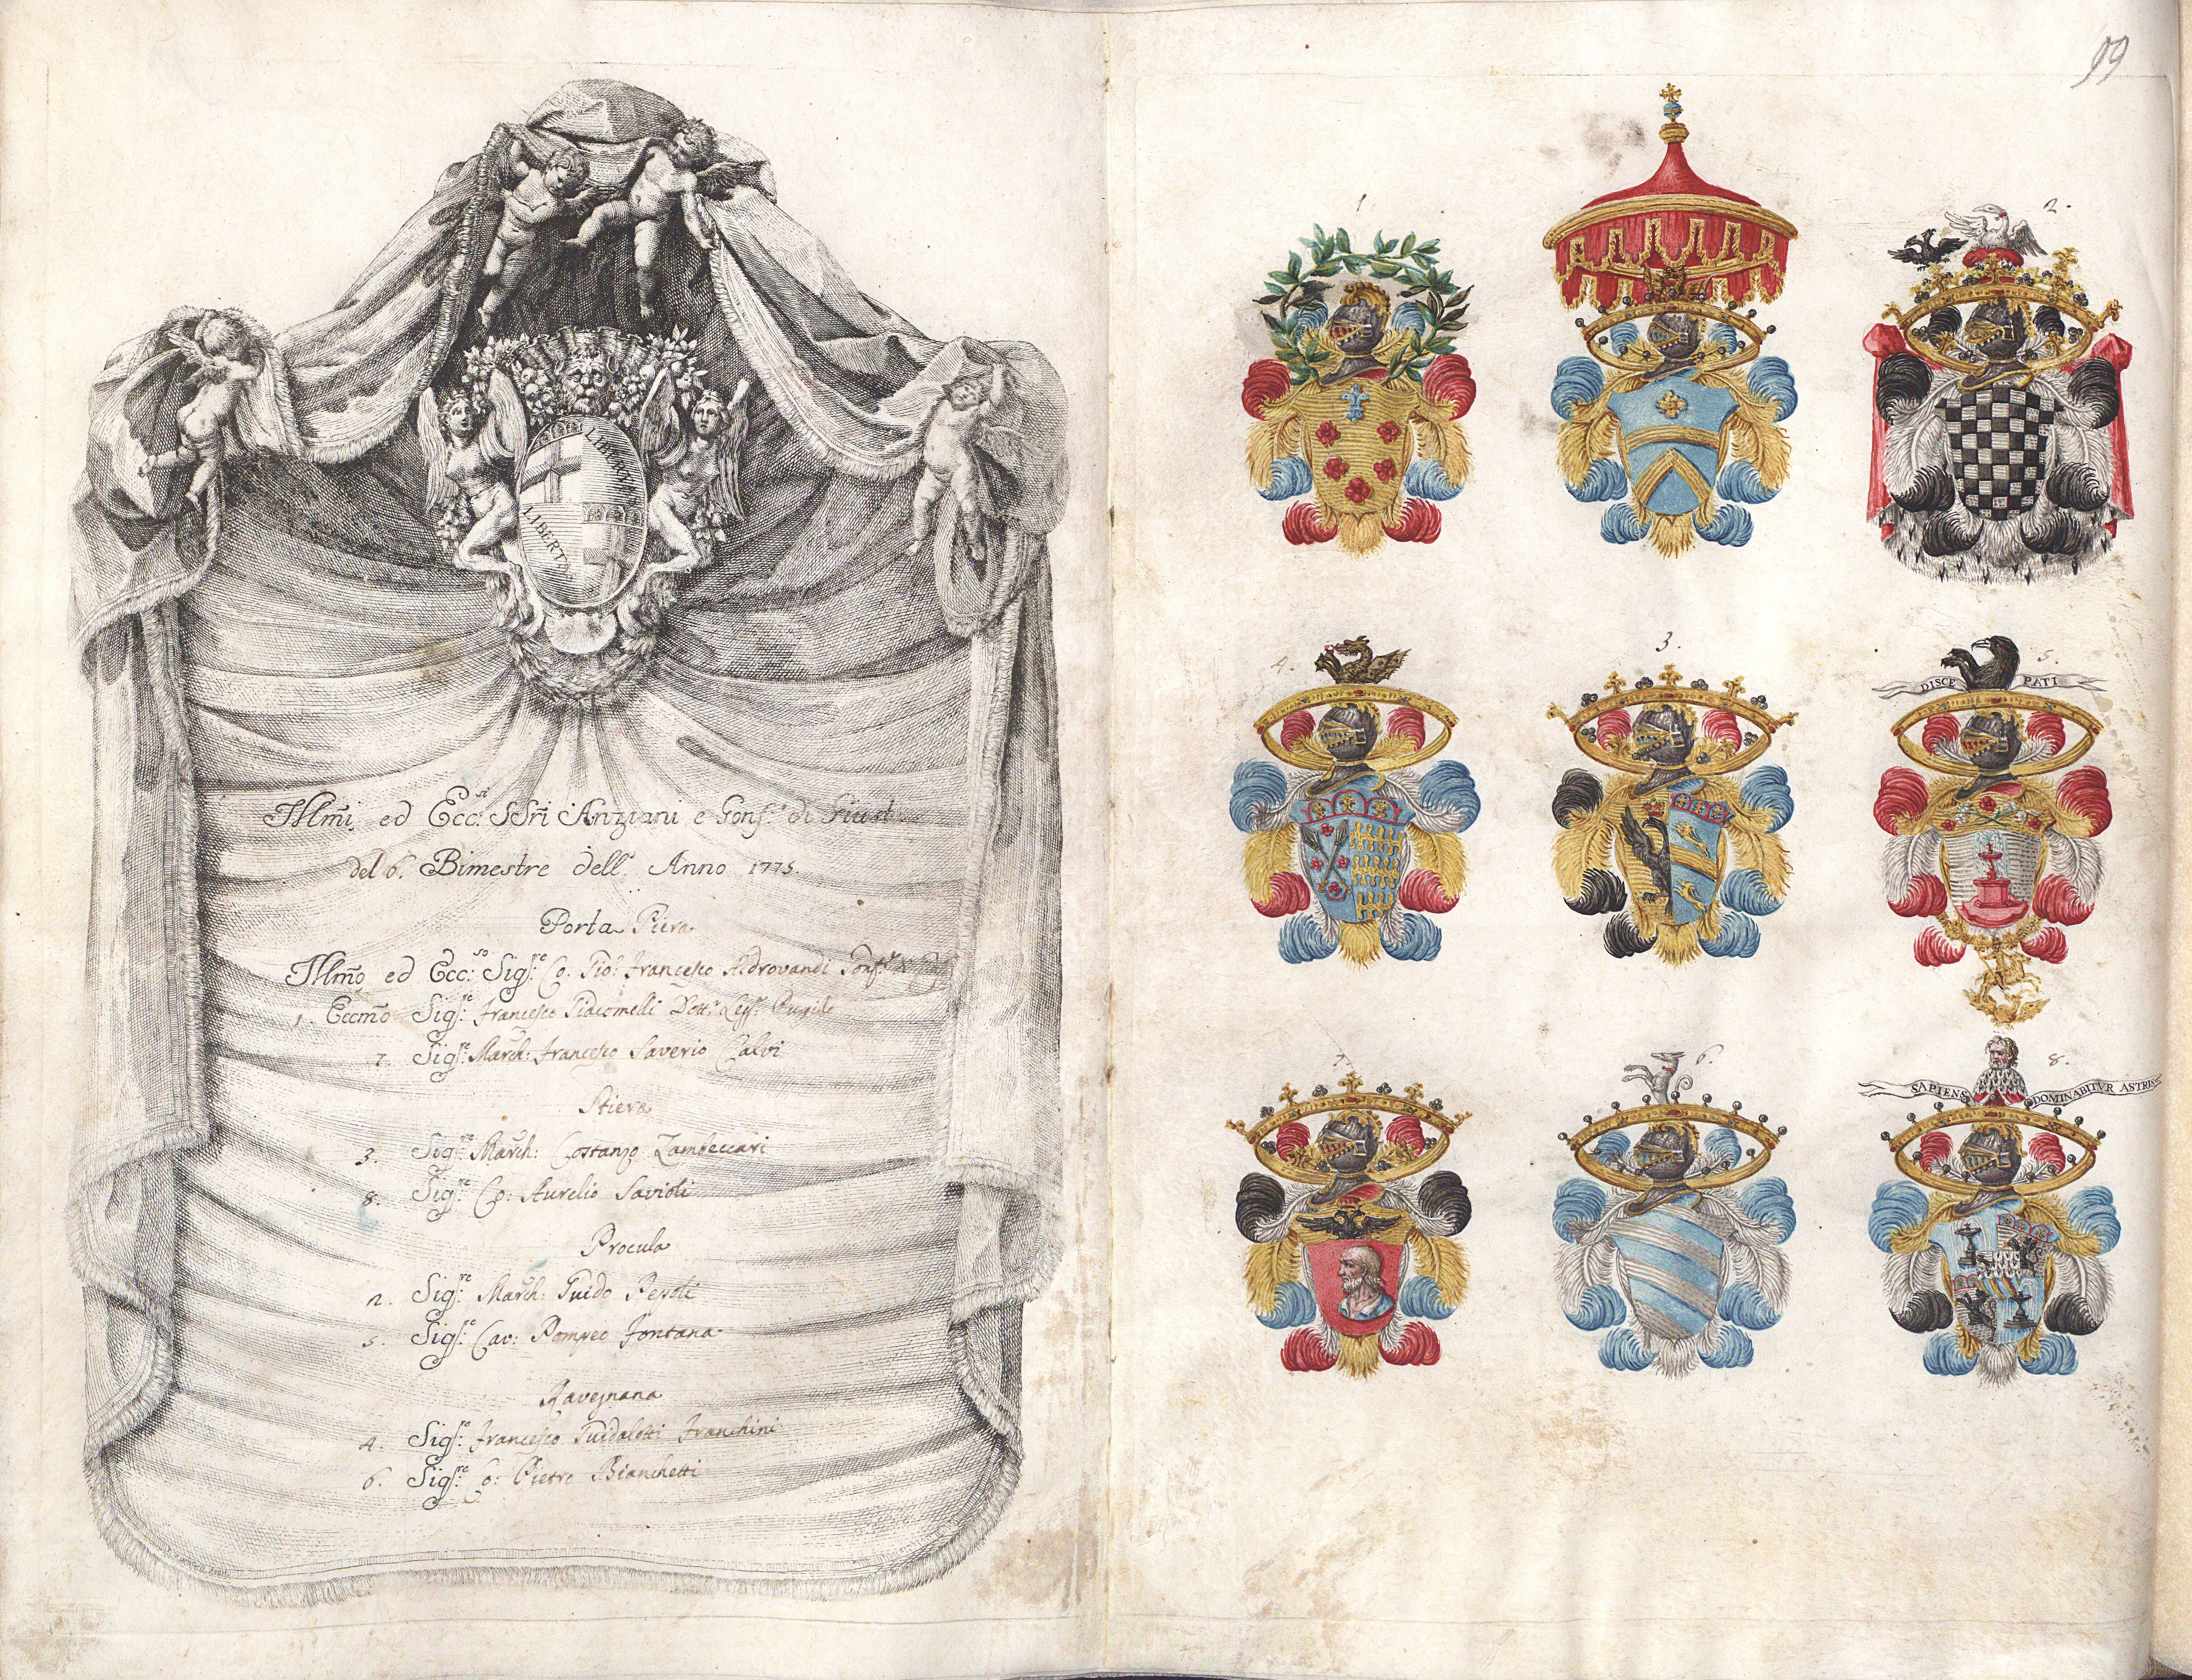 LIBERTAS
LIBERTAS
Illm̃i ed Ecc.si SSri Anziani e Cons.i di Giust
del 6. Bimestre dell' Anno 1775.
Porta Piera
Illm̃o ed Ecc.so Sig.re Co: Gio: Francesco Aldrovandi Gonf.re
1. Eccm̃o Sig.re Francesco Giacomelli Dott.r Legg.
7. Sig.re March: Francesco Saverio Calvi
Stiera
3. Sig.re March: Costanzo Zambeccari
8. Sig.re Co: Aurelio Savioli
Procula
2. Sig.re March: Guido Pepoli
5. Sig.re Cav: Pompeo Fontana
Ravegnana
4. Sig.re Francesco Guidalotti Franchini
6. Sig.re Co: Pietro Bianchetti
99
1
2.
4.
3.
5.
DISCE PATI
7.
6.
8.
SAPIENS DOMINABITVR ASTRIS